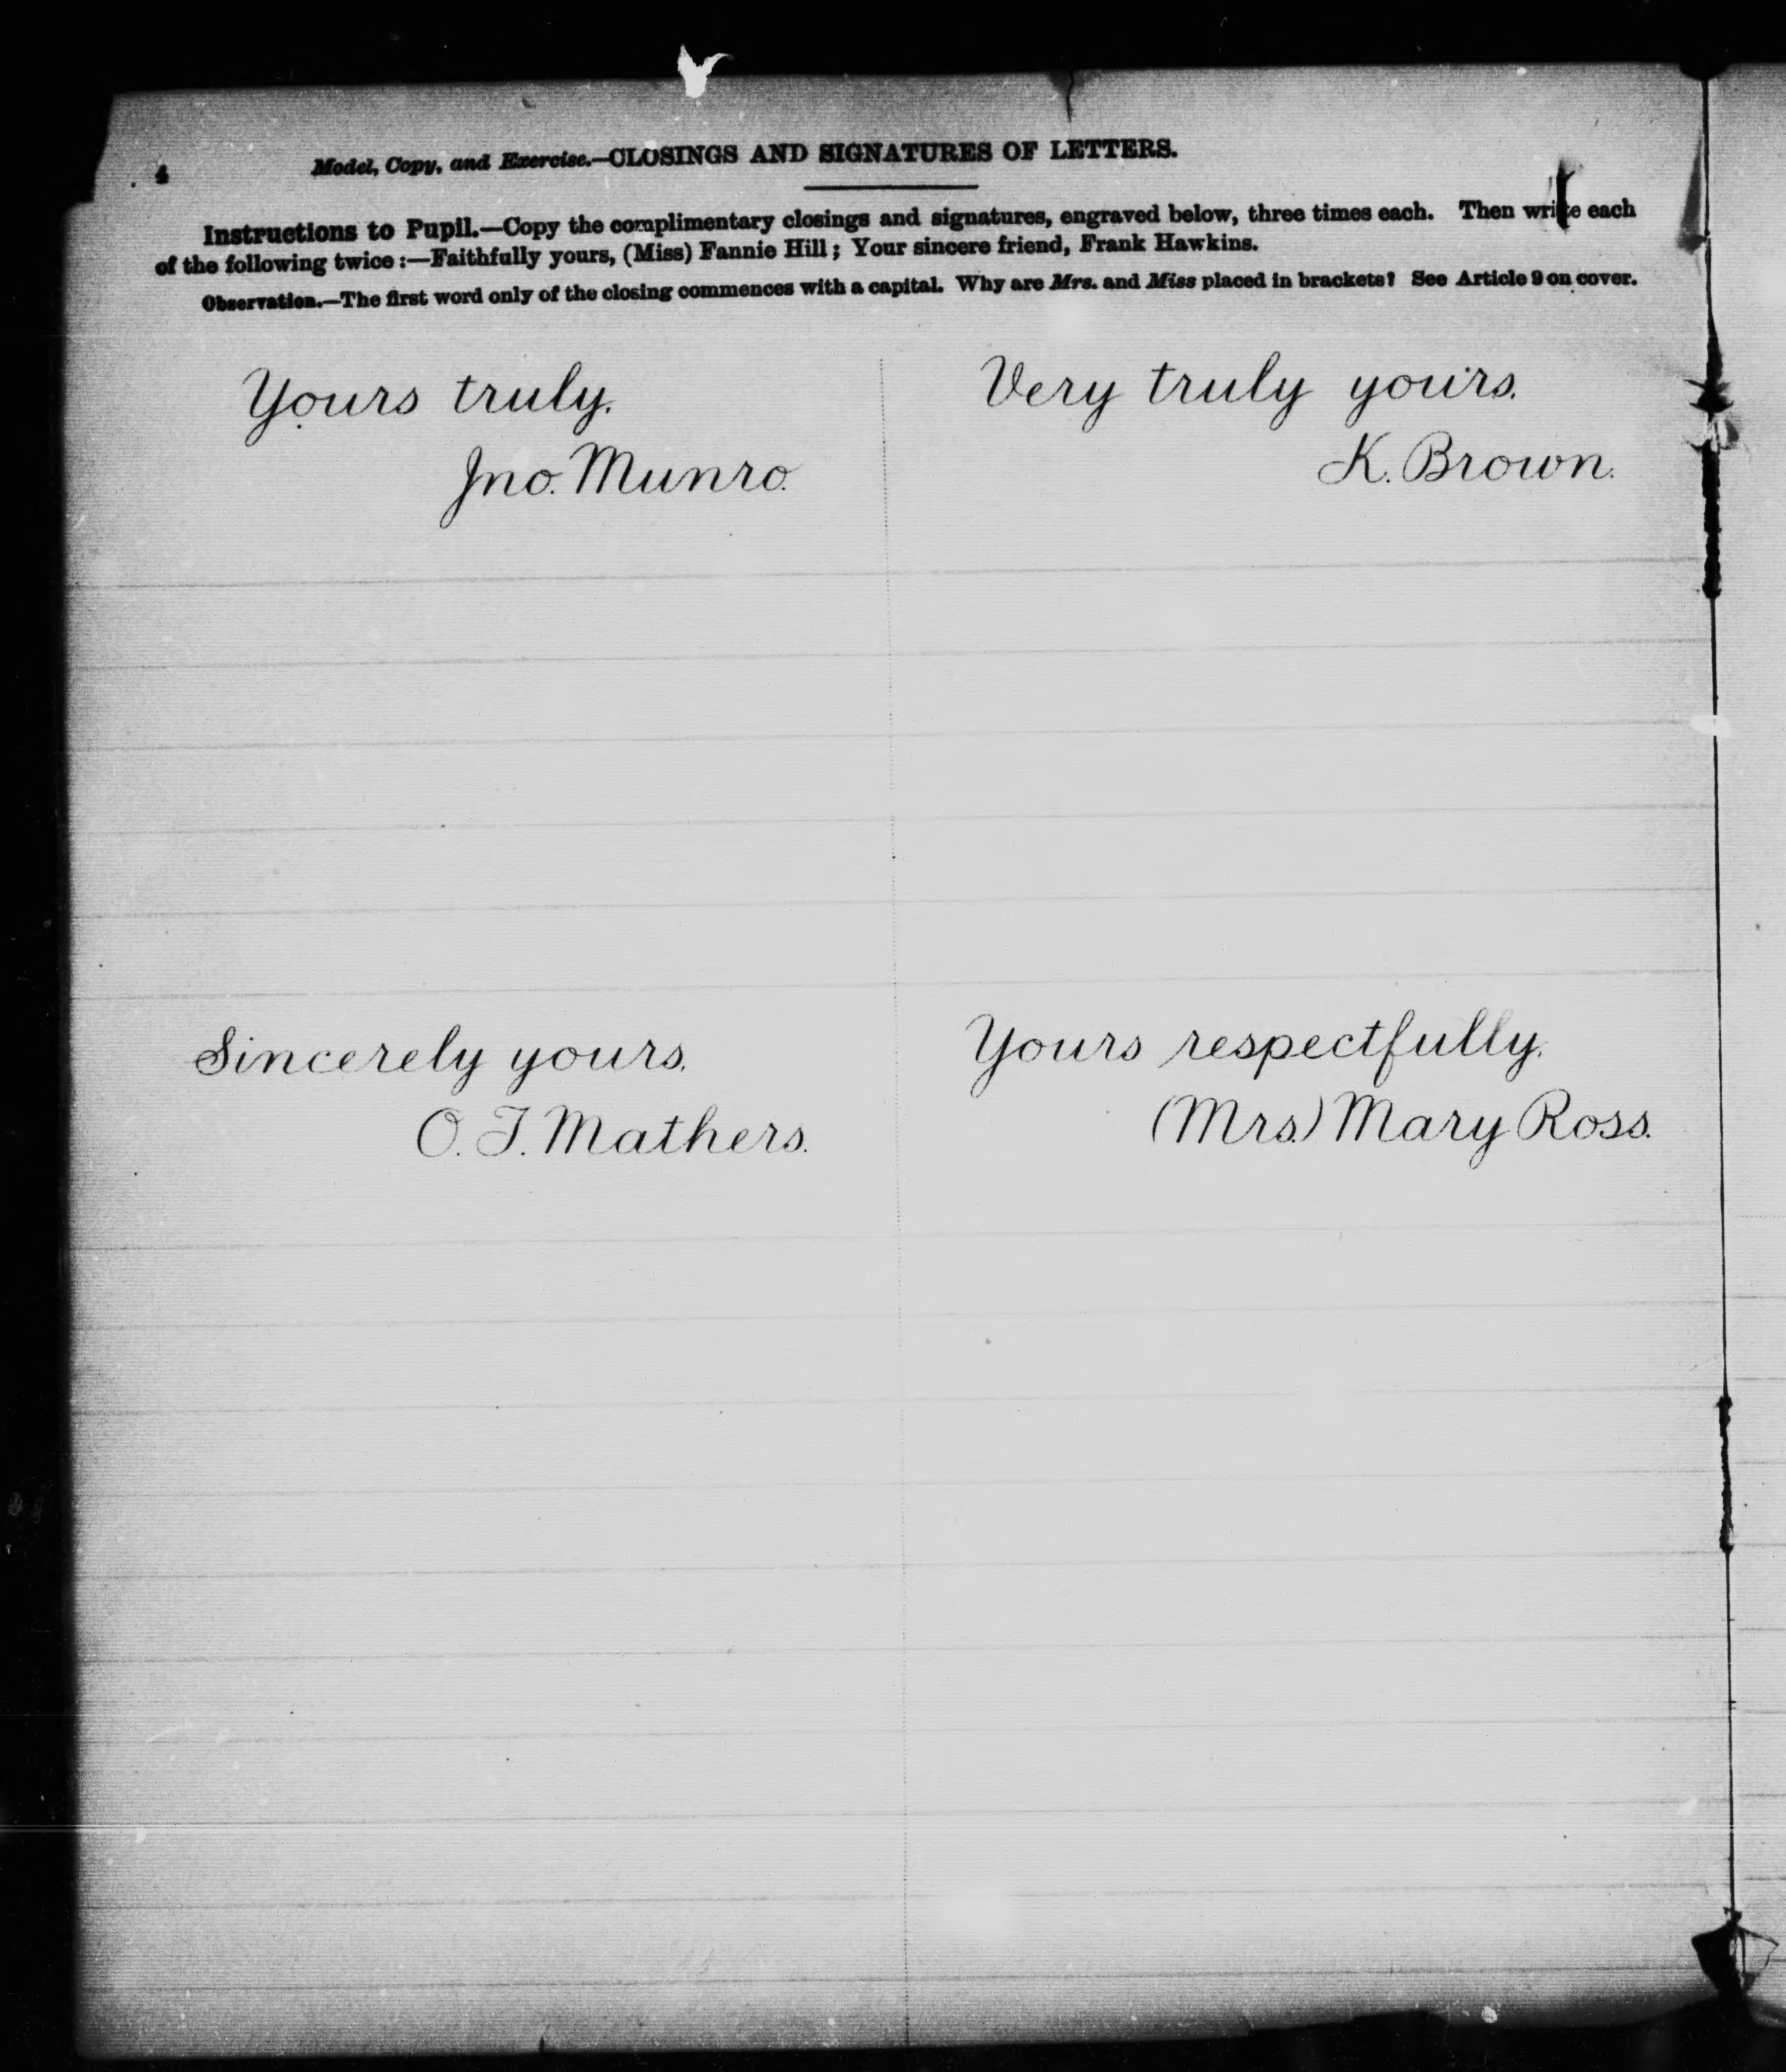 4
Model, Copy, and Exercise.—CLOSINGS AND SIGNATURES OF LETTERS.
Instructions to Pupil.—Copy the complimentary closings and signatures, engraved below, three times each. Then write each
of the following twice :—Faithfully yours, (Miss) Fannie Hill ; Your sincere friend, Frank Hawkins.
Observation.—The first word only of the closing commences with a capital. Why are Mrs. and Miss placed in brackets? See Article 9 on cover.
Yours truly.
Jno. Munro.
Very truly yours.
K. Brown.
Sincerely yours.
O. T. Mathers.
Yours respectfully.
(Mrs.) Mary Ross.